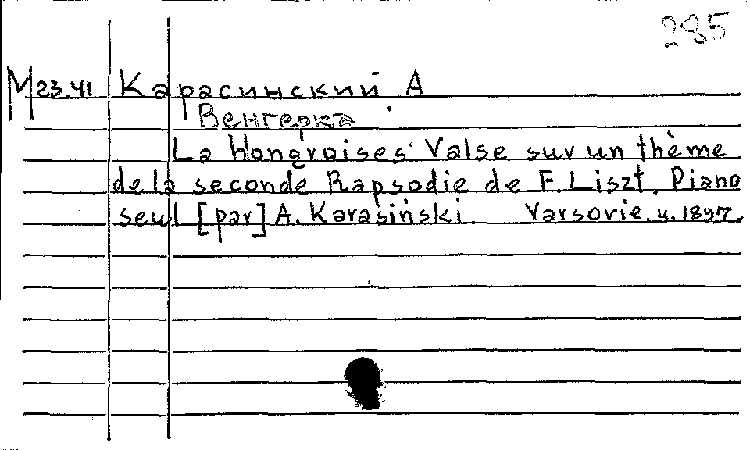 285
М 23.41 Карасинский А.
Венгерка
La Hongroises Valse sur un thème
de la seconde Rapsodie de F. Liszt. Piano
seul [par] A. Karasiński. Varsovie. ц. 1897.